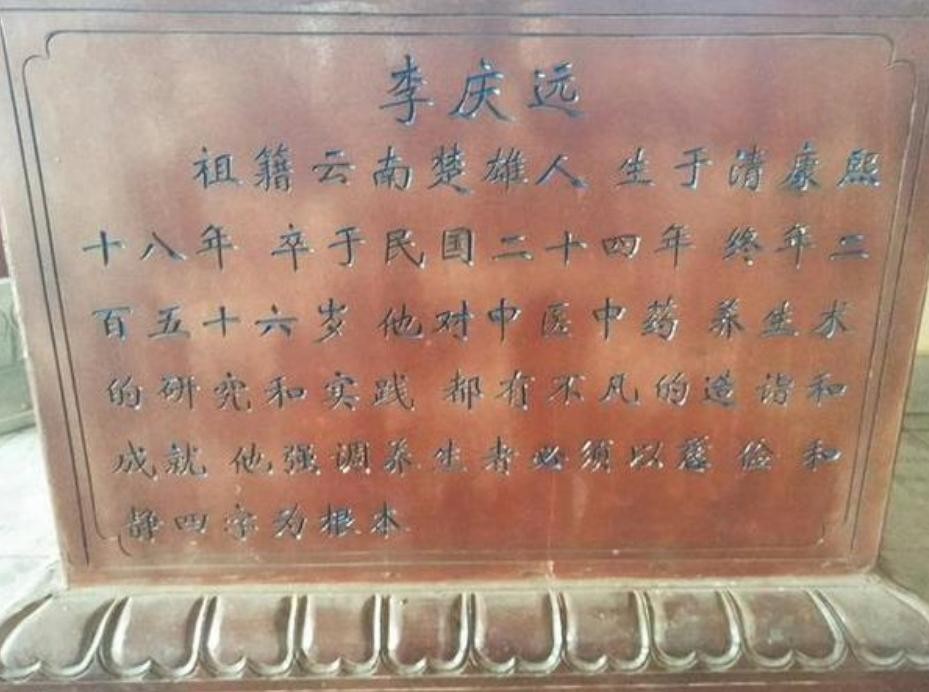 李庆远
祖籍云南楚雄人 生于清康熙
十八年 卒于民国二十四年 终年二
百五十六岁 他对中医中药 养生术
的研究和实践 都有不凡的造诣和
成就 他强调养生者必须以慈 俭 和
静四字为根本